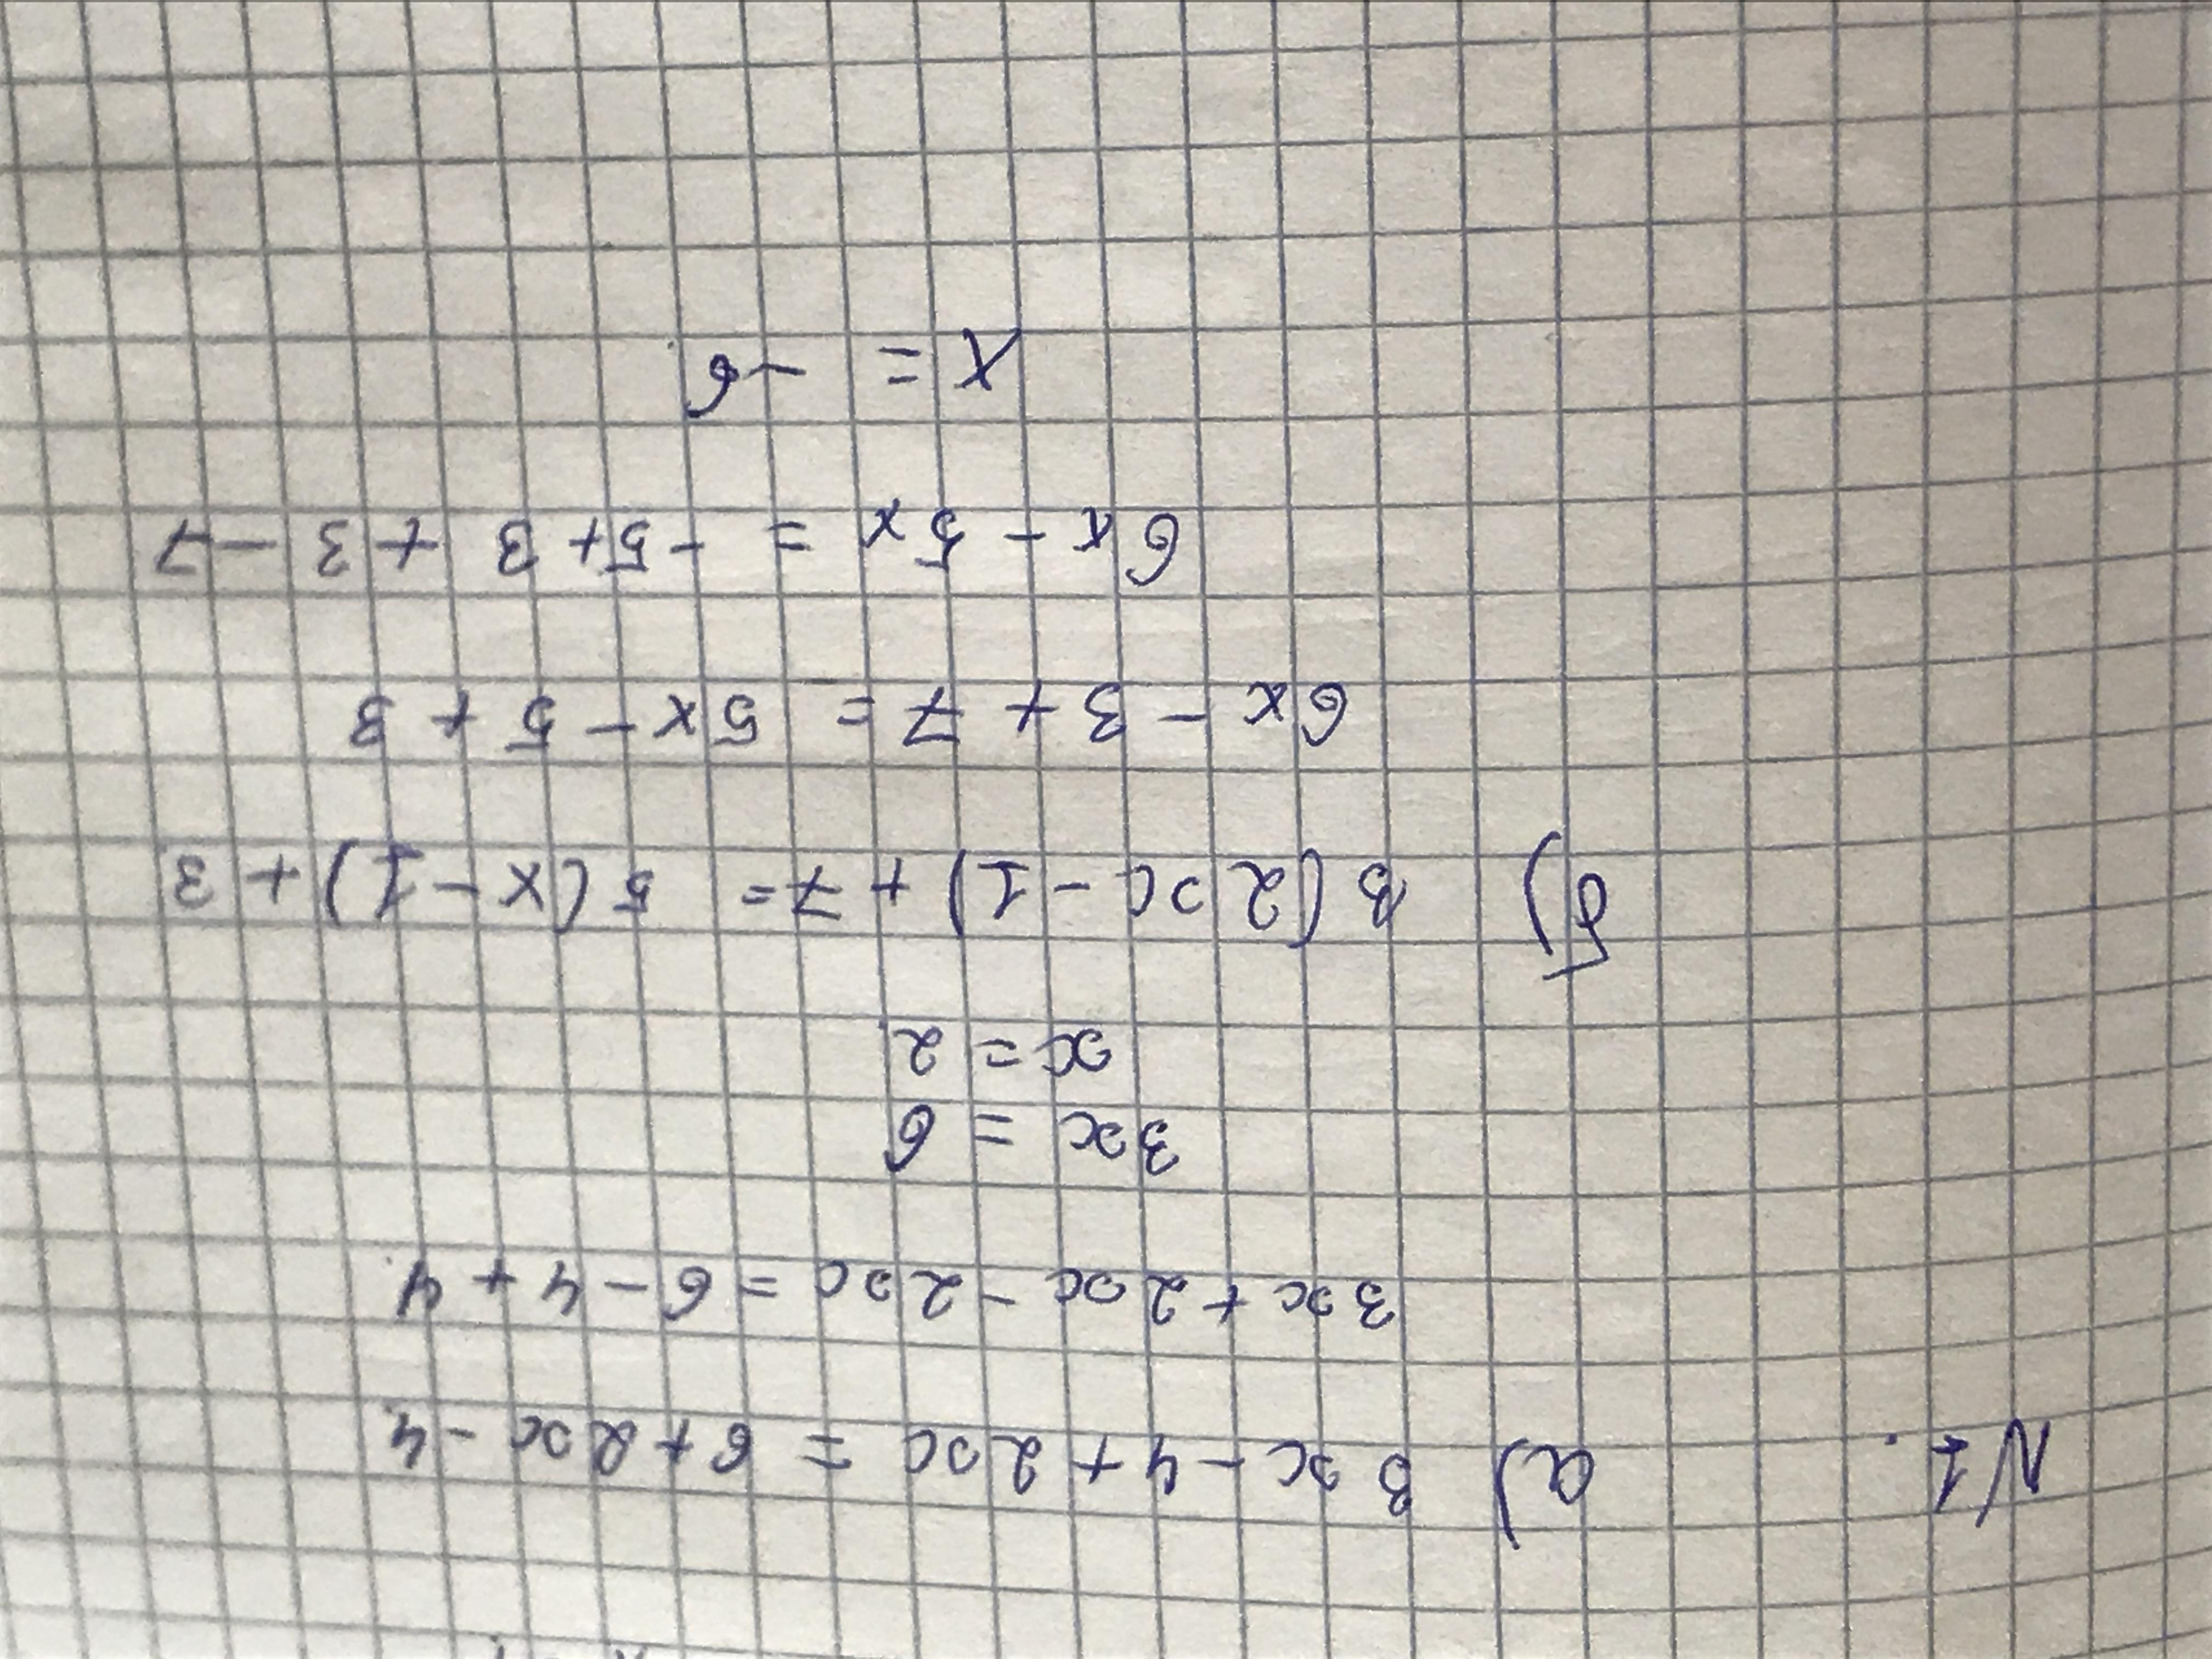 N1. а) 3x - 4 + 2x = 6 + 2x - 4
3x + 2x - 2x = 6 - 4 + 4
3x = 6
x = 2
б) 3(2x - 1) + 7 = 5(x - 1) + 3
6x - 3 + 7 = 5x - 5 + 3
6x - 5x = -5 + 3 + 3 - 7
x = -6